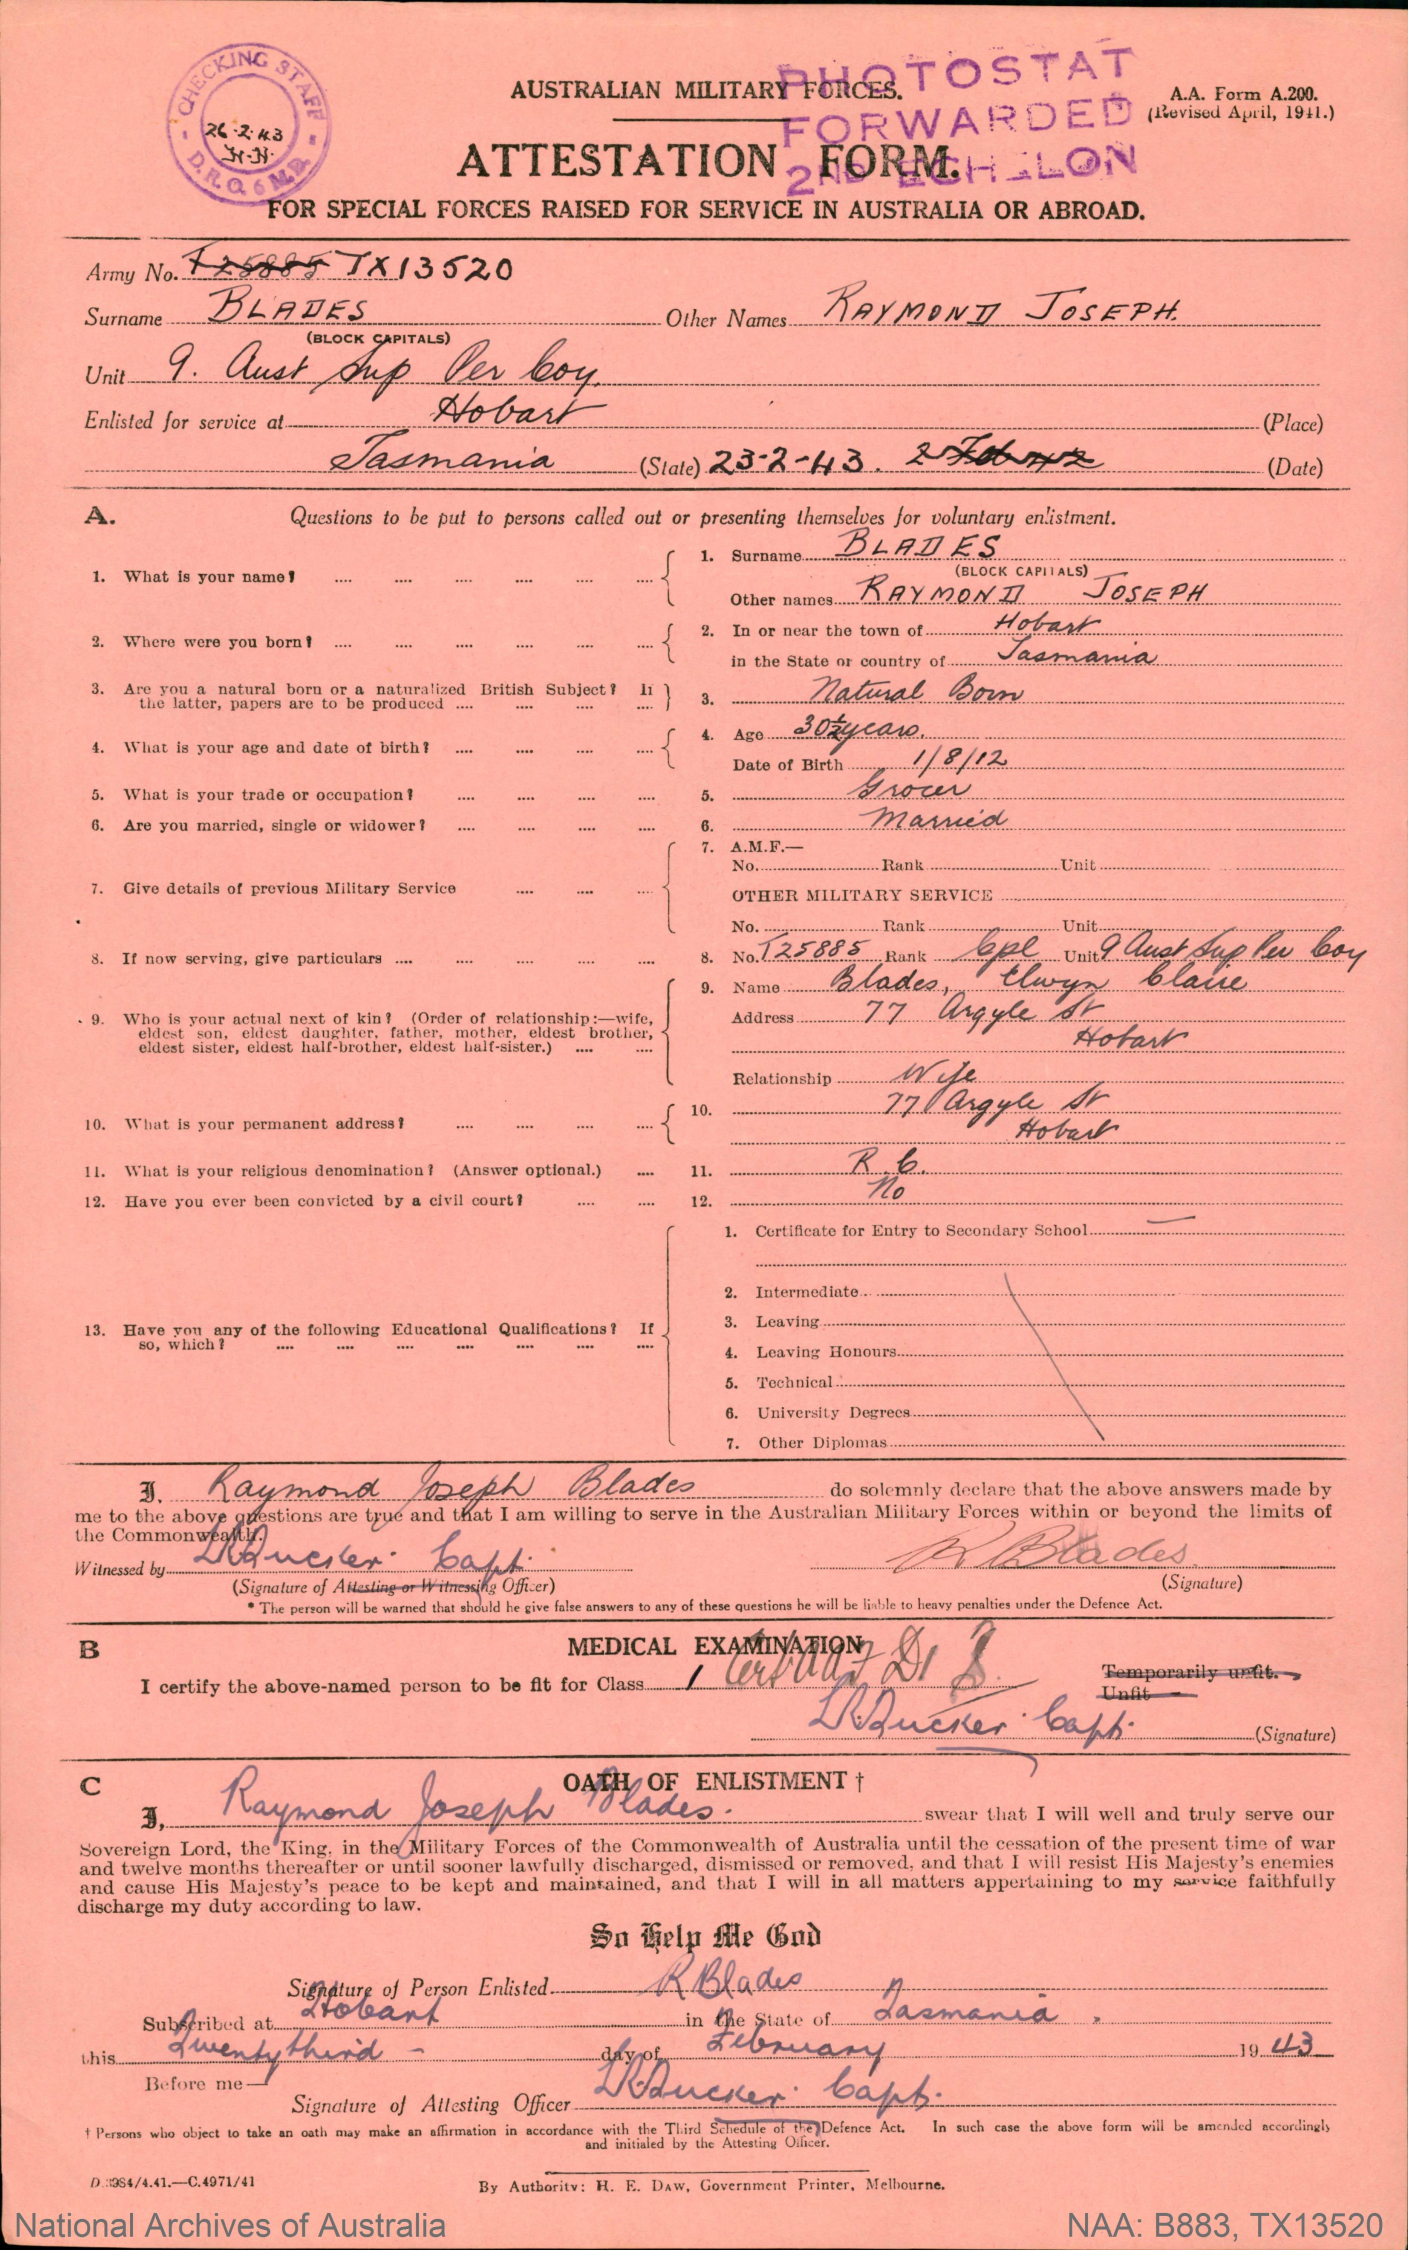 CHECKING STAFF
26·2·43
D.R.O. 6 M.D.
PHOTOSTAT
FORWARDED
2ND ECHELON
AUSTRALIAN MILITARY FORCES.
A.A. Form A.200.
(Revised April, 1941.)
ATTESTATION FORM.
FOR SPECIAL FORCES RAISED FOR SERVICE IN AUSTRALIA OR ABROAD.
Army No. T25885 TX13520
Surname BLADES Other Names RAYMOND JOSEPH.
(BLOCK CAPITALS)
Unit 9. Aust Sup Per Coy.
Enlisted for service at Hobart (Place)
Tasmania (State) 23-2-43. 2 Feb 42 (Date)
A. Questions to be put to persons called out or presenting themselves for voluntary enlistment.
1. What is your name? 1. Surname BLADES
(BLOCK CAPITALS)
Other names RAYMOND JOSEPH
2. Where were you born? 2. In or near the town of Hobart
in the State or country of Tasmania
3. Are you a natural born or a naturalized British Subject? If
the latter, papers are to be produced 3. Natural Born
4. What is your age and date of birth? 4. Age 30½ years.
Date of Birth 1/8/12
5. What is your trade or occupation? 5. Grocer
6. Are you married, single or widower? 6. Married
7. Give details of previous Military Service 7. A.M.F.—
No. Rank Unit
OTHER MILITARY SERVICE
No. Rank Unit
8. If now serving, give particulars 8. No. T25885 Rank Cpl Unit 9 Aust Sup Per Coy
9. Who is your actual next of kin? (Order of relationship:—wife,
eldest son, eldest daughter, father, mother, eldest brother,
eldest sister, eldest half-brother, eldest half-sister.)
9. Name Blades, Elwyn Claire
Address 77 Argyle St
Hobart
Relationship Wife
10. What is your permanent address? 10. 77 Argyle St
Hobart
11. What is your religious denomination? (Answer optional.) 11. R.C.
12. Have you ever been convicted by a civil court? 12. No
13. Have you any of the following Educational Qualifications? If
so, which?
1. Certificate for Entry to Secondary School —
2. Intermediate
3. Leaving
4. Leaving Honours
5. Technical
6. University Degrees
7. Other Diplomas
I, Raymond Joseph Blades do solemnly declare that the above answers made by
me to the above questions are true and that I am willing to serve in the Australian Military Forces within or beyond the limits of
the Commonwealth.
Witnessed by LR Tucker Capt. R Blades
(Signature of Attesting or Witnessing Officer) (Signature)
* The person will be warned that should he give false answers to any of these questions he will be liable to heavy penalties under the Defence Act.
B MEDICAL EXAMINATION
I certify the above-named person to be fit for Class 1 Temporarily unfit.
Unfit
LR Tucker Capt. (Signature)
C OATH OF ENLISTMENT †
I, Raymond Joseph Blades. swear that I will well and truly serve our
Sovereign Lord, the King, in the Military Forces of the Commonwealth of Australia until the cessation of the present time of war
and twelve months thereafter or until sooner lawfully discharged, dismissed or removed, and that I will resist His Majesty's enemies
and cause His Majesty's peace to be kept and maintained, and that I will in all matters appertaining to my service faithfully
discharge my duty according to law.
So Help Me God
Signature of Person Enlisted R Blades
Subscribed at Hobart in the State of Tasmania.
this Twenty third - day of February 1943
Before me—
Signature of Attesting Officer LR Tucker Capt.
† Persons who object to take an oath may make an affirmation in accordance with the Third Schedule of the Defence Act. In such case the above form will be amended accordingly
and initialed by the Attesting Officer.
D.3984/4.41.—C.4971/41
By Authority: H. E. DAW, Government Printer, Melbourne.
National Archives of Australia
NAA: B883, TX13520